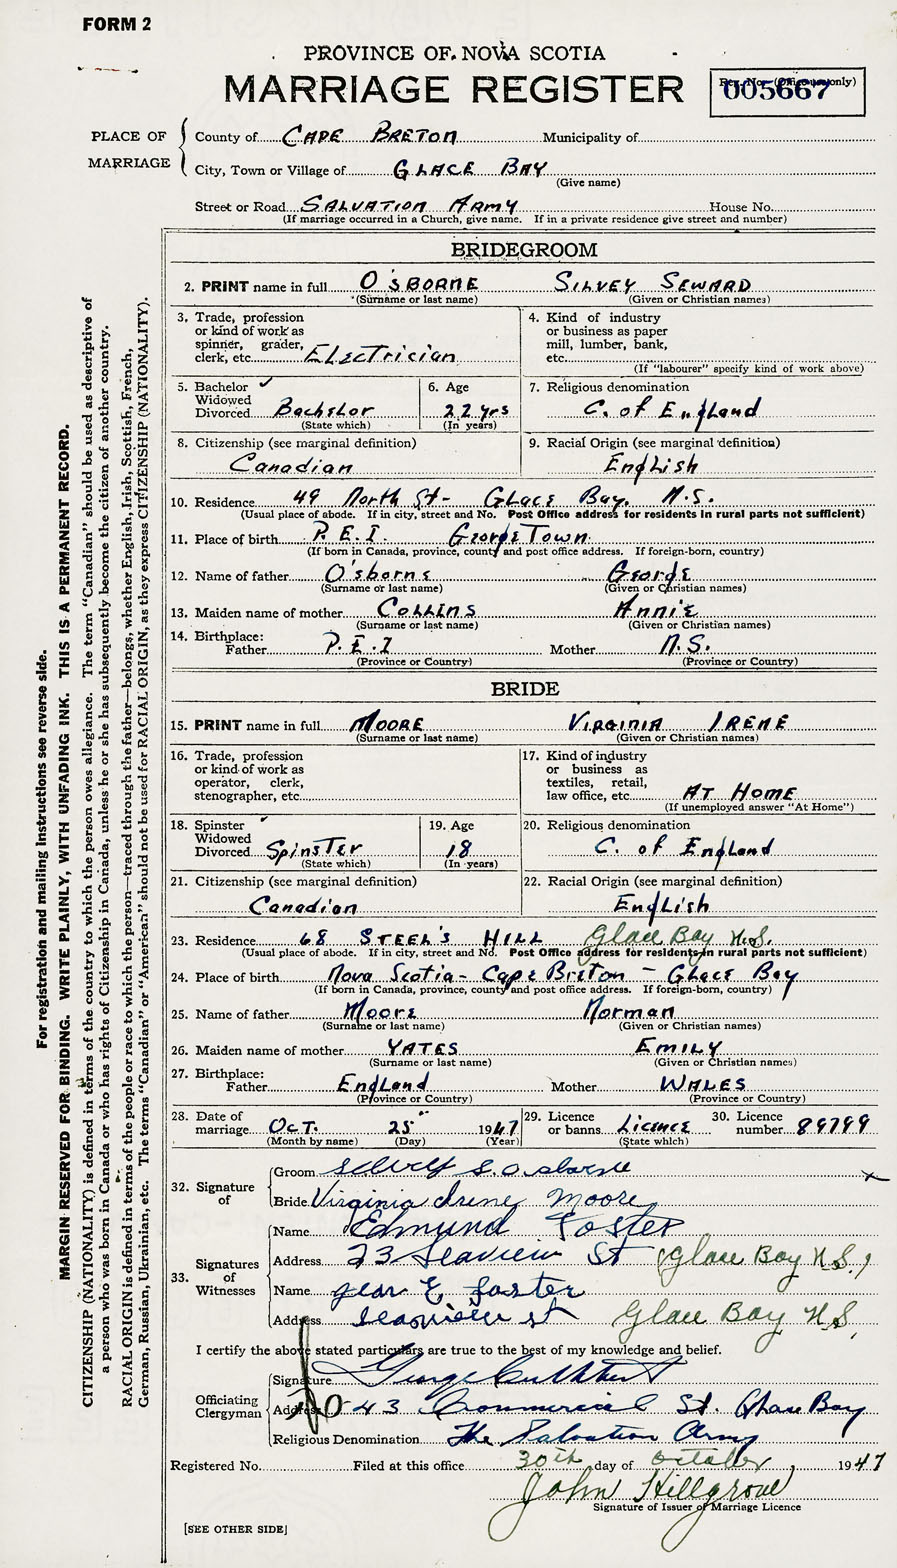 FORM 2
PROVINCE OF NOVA SCOTIA
MARRIAGE REGISTER
Reg. No. (Office use only)
005667
PLACE OF MARRIAGE
County of CAPE BRETON Municipality of
City, Town or Village of GLACE BAY
(Give name)
Street or Road SALVATION ARMY House No.
(If marriage occurred in a Church, give name. If in a private residence give street and number)
BRIDEGROOM
2. PRINT name in full O'SBORNE SILVEY SEWARD
(Surname or last name) (Given or Christian names)
3. Trade, profession or kind of work as spinner, grader, clerk, etc. Electrician
4. Kind of industry or business as paper mill, lumber, bank, etc.
(If "labourer" specify kind of work above)
5. Bachelor ✓ Widowed Divorced Bachelor
(State which)
6. Age 22 yrs
(In years)
7. Religious denomination C. of England
8. Citizenship (see marginal definition) Canadian
9. Racial Origin (see marginal definition) English
10. Residence 49 North St- Glace Bay. N.S.
(Usual place of abode. If in city, street and No. Post Office address for residents in rural parts not sufficient)
11. Place of birth P.E.I. GeorgeTown
(If born in Canada, province, county and post office address. If foreign-born, country)
12. Name of father O'sborne George
(Surname or last name) (Given or Christian names)
13. Maiden name of mother COLLINS ANNIE
(Surname or last name) (Given or Christian names)
14. Birthplace:
Father P.E.I Mother N.S.
(Province or Country) (Province or Country)
BRIDE
15. PRINT name in full MOORE VIRGINIA IRENE
(Surname or last name) (Given or Christian names)
16. Trade, profession or kind of work as operator, clerk, stenographer, etc.
17. Kind of industry or business as textiles, retail, law office, etc. AT HOME
(If unemployed answer "At Home")
18. Spinster ✓ Widowed Divorced Spinster
(State which)
19. Age 18
(In years)
20. Religious denomination C. of England
21. Citizenship (see marginal definition) Canadian
22. Racial Origin (see marginal definition) English
23. Residence 68 STEEL'S HILL Glace Bay N.S.
(Usual place of abode. If in city, street and No. Post Office address for residents in rural parts not sufficient)
24. Place of birth Nova Scotia - Cape Breton - Glace Bay
(If born in Canada, province, county and post office address. If foreign-born, country)
25. Name of father Moore Norman
(Surname or last name) (Given or Christian names)
26. Maiden name of mother YATES EMILY
(Surname or last name) (Given or Christian names)
27. Birthplace:
Father England Mother WALES
(Province or Country) (Province or Country)
28. Date of marriage OCT. 25" 1947
(Month by name) (Day) (Year)
29. Licence or banns Licence
(State which)
30. Licence number 89799
32. Signature of
Groom S. Osborne
Bride Virginia Irene Moore
33. Signatures of Witnesses
Name Edmund Foster
Address 23 Seaview St (Glace Bay N.S.)
Name Jean E Foster
Address Seaview st Glace Bay N.S.
I certify the above stated particulars are true to the best of my knowledge and belief.
Officiating Clergyman
Signature George Cuthbert
Address 43 Commercial St. Glace Bay
Religious Denomination The Salvation Army
Registered No. Filed at this office 30th day of October 1947
John Hillgrove
Signature of Issuer of Marriage Licence
[SEE OTHER SIDE]
For registration and mailing instructions see reverse side.
MARGIN RESERVED FOR BINDING. WRITE PLAINLY, WITH UNFADING INK. THIS IS A PERMANENT RECORD.
CITIZENSHIP (NATIONALITY) is defined in terms of the country to which the person owes allegiance. The term "Canadian" should be used as descriptive of
a person who was born in Canada or who has rights of Citizenship in Canada, unless he or she has subsequently become the citizen of another country.
RACIAL ORIGIN is defined in terms of the people or race to which the person—traced through the father—belongs, whether English, Irish, Scottish, French,
German, Russian, Ukrainian, etc. The terms "Canadian" or "American" should not be used for RACIAL ORIGIN, as they express CITIZENSHIP (NATIONALITY).